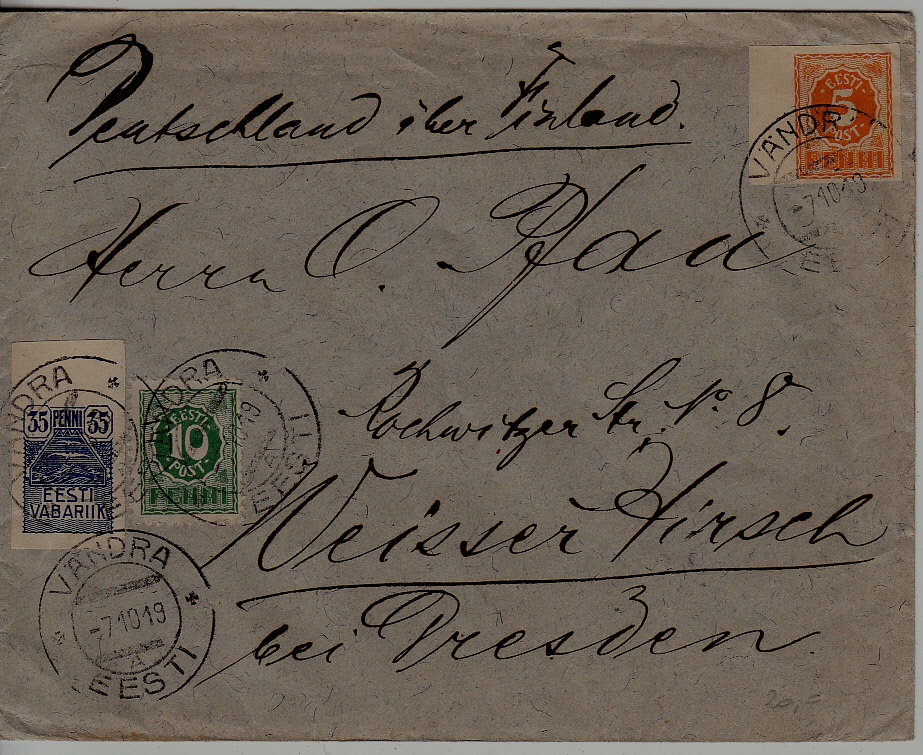 Deutschland über Finland.
EESTI
5
POST
PENNI
VÄNDRA
-7 10 19
EE
Herrn O. Pfau
VÄNDRA
EESTI
35 PENNI 35
EESTI
VABARIIK
EESTI
10
POST
PENNI
Rochwitzer Str. No. 8.
Weisser Hirsch
VÄNDRA
-7 10 19
A
EESTI
bei Dresden.
20,=